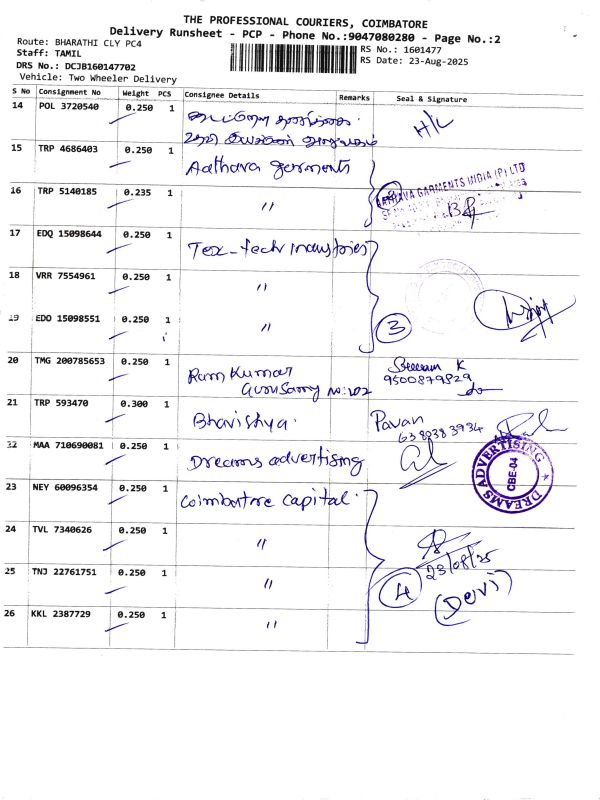 THE PROFESSIONAL COURIERS, COIMBATORE
Delivery Runsheet - PCP - Phone No.:9047080280 - Page No.:2
Route: BHARATHI CLY PC4
RS No.: 1601477
Staff: TAMIL
RS Date: 23-Aug-2025
DRS No.: DCJB160147702
Vehicle: Two Wheeler Delivery
S No Consignment No Weight PCS Consignee Details Remarks Seal & Signature
14 POL 3720540 0.250 1 H/L
15 TRP 4686403 0.250 1 Aathava garments
16 TRP 5140185 0.235 1 〃
GARMENTS INDIA (P) LTD
17 EDQ 15098644 0.250 1 Tex-tech industries
18 VRR 7554961 0.250 1 〃
19 EDO 15098551 0.250 1 〃 3
20 TMG 200785653 0.250 1 Ram Kumar
no: 102
9500879829
21 TRP 593470 0.300 1 Bhavishya. Pavan
22 MAA 710690081 0.250 1 Dreams advertising
DREAMS ADVERTISING
CBE-04
23 NEY 60096354 0.250 1 Coimbatore capital.
24 TVL 7340626 0.250 1 〃
23/08/25
25 TNJ 22761751 0.250 1 〃 4
(Devi)
26 KKL 2387729 0.250 1 〃